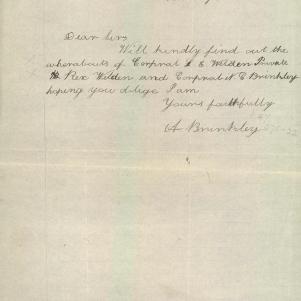 Dear Sirs
Will kindly find out the
wherabouts of Corpral L E Wilden Private
Rex Wilden and Corpral N. C Brinkley
hoping you oblige I am
Yours faithfully
A Brinkley